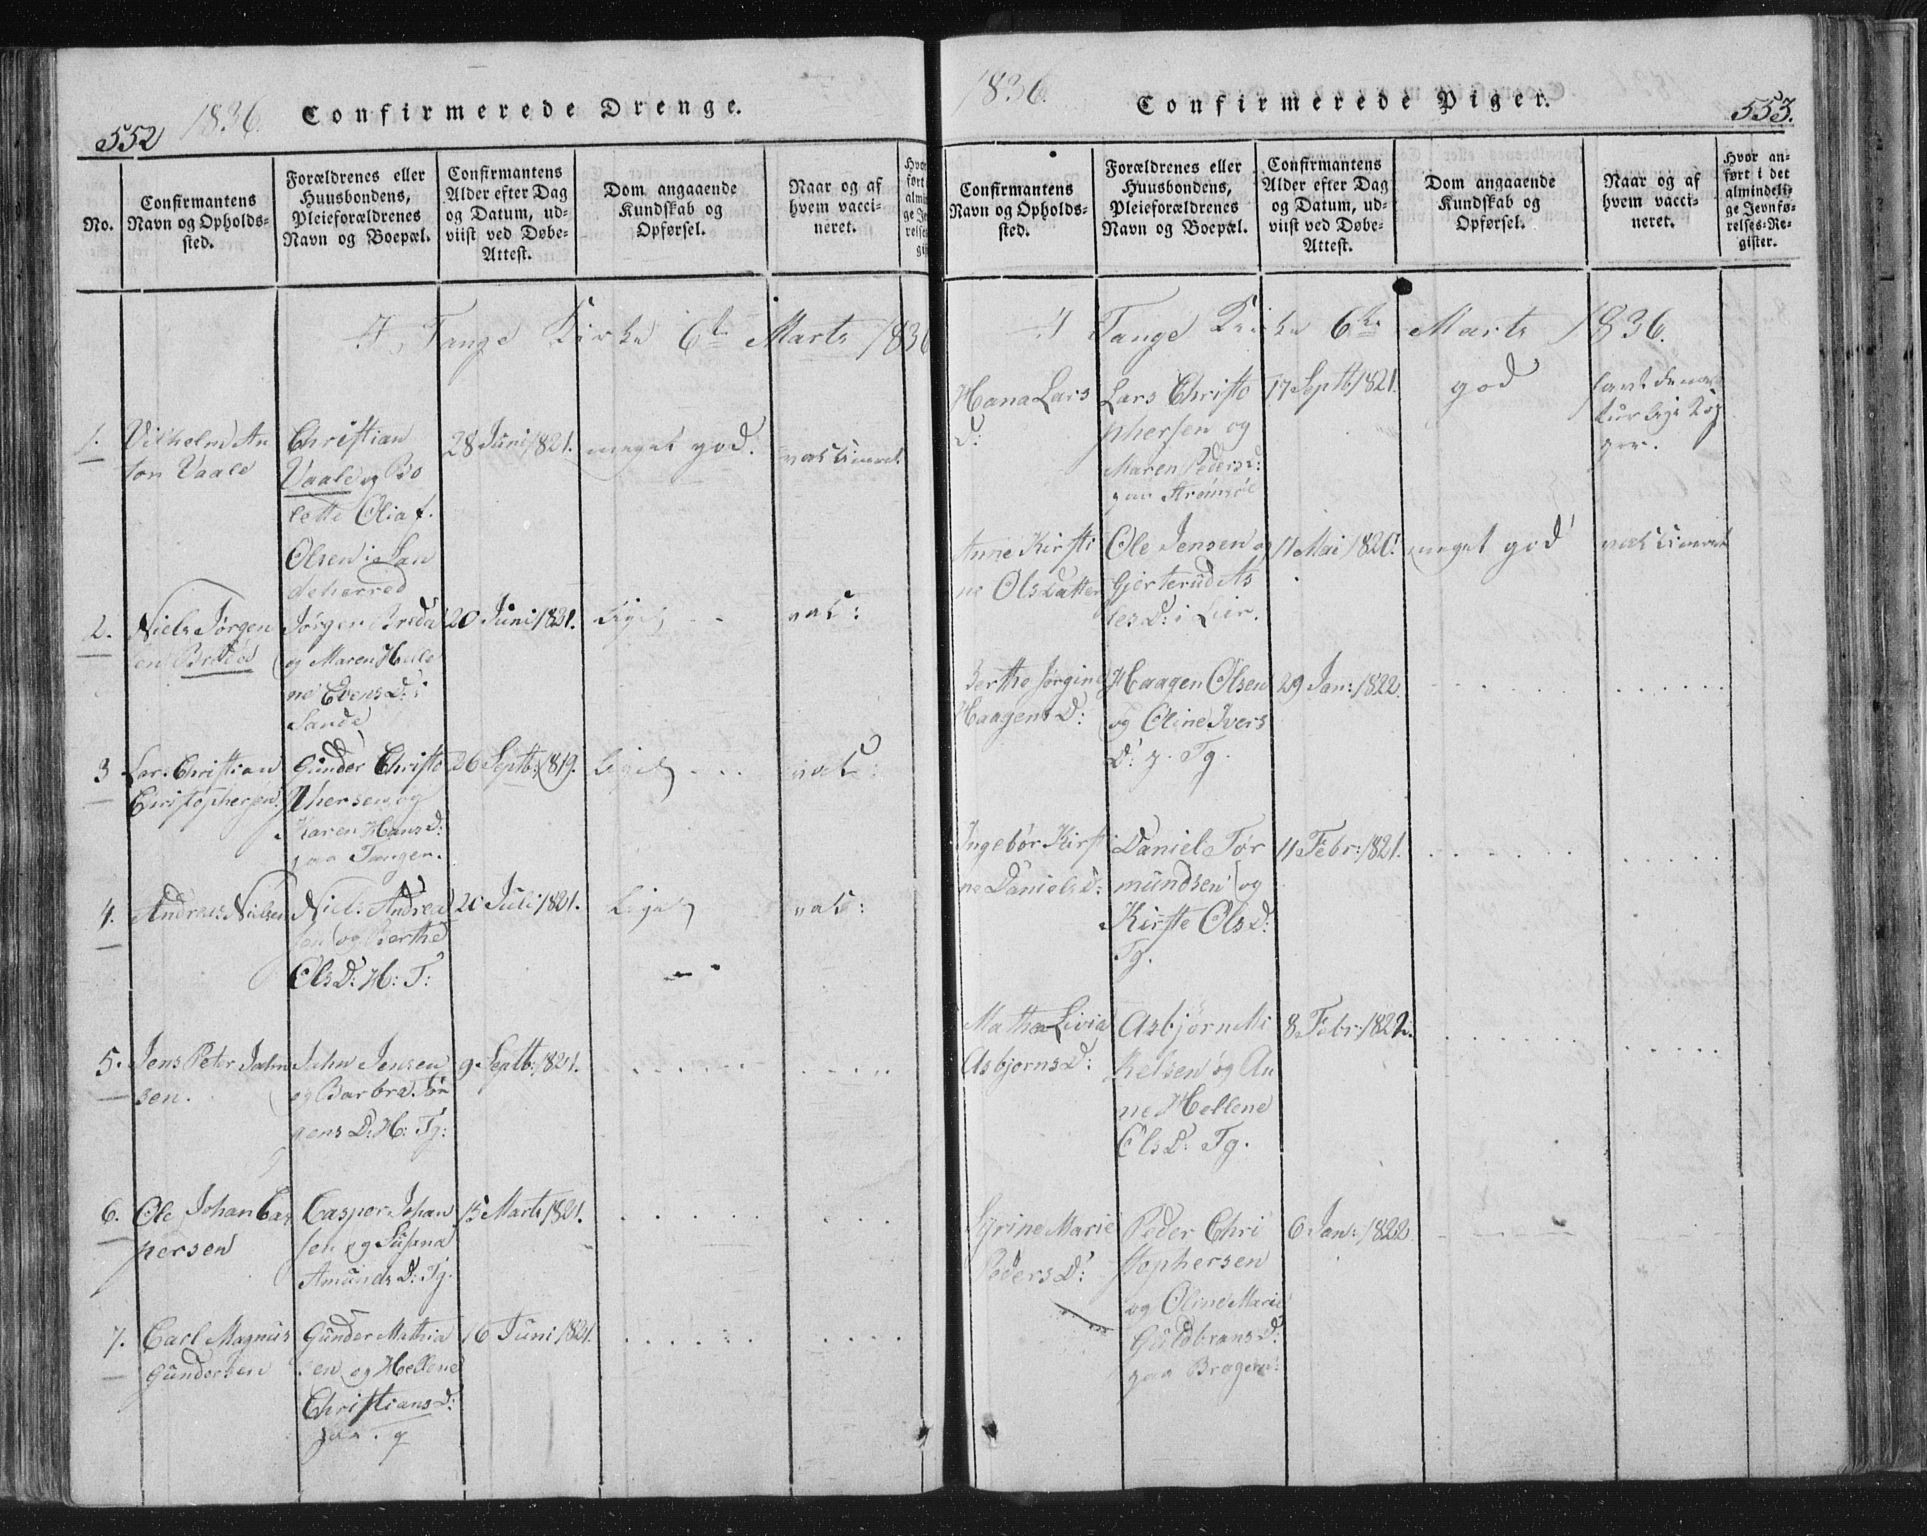 552
1836.
Confirmerede Drenge.
No.
Confirmantens
Navn og Opholds-
sted.
Forældrenes eller
Huusbondens,
Pleieforældrenes
Navn og Boepæl.
Confirmantens
Alder efter Dag
og Datum, ud-
viist ved Døbe-
Attest.
Dom angaaende
Kundskab og
Opførsel.
Naar og af
hvem vacci-
neret.
I Tange Kirke 6te Marts 1836
1.
Vilhelm An
ton Vaale
Christian
Vaale og Bo
lette Olia f.
Olsen i San
deherred
28 Juni 1821.
meget god.
vaccineret
2.
Niels Jørgen
sen Breda
Jørgen Breda
og Maren Helle
ne Evens D: i
Sande
20 Juni 1821.
Lige
vac:
3
Lars Christian
Christophersen
Gunder Christo
phersen og
Karen Hans D:
paa Tangen.
26 Septb: 1819.
Lige
vac:
4.
Andreas Nielsen
Niels Andrea
sen og Berthe
Ols D: H: T:
20 Juli 1821.
Lige
vac:
5.
Jens Peter John
sen.
John Jensen
og Barbra Jør
gens D: H: Tg:
9 Septb: 1821.
6.
Ole Johan Cas
persen
Casper Johan
sen og Susana
Amunds D: Tg.
15 Marts 1821.
7.
Carl Magnus
Gundersen
Gunder Mathia
sen og Hellene
Christians D:
16 Juni 1821.
1836.
Confirmerede Piger.
553.
Confirmantens
Navn og Opholds-
sted.
Forældrenes eller
Huusbondens,
Pleieforældrenes
Navn og Boepæl.
Confirmantens
Alder efter Dag
og Datum, ud-
viist ved Døbe-
Attest.
Dom angaaende
Kundskab og
Opførsel.
Naar og af
hvem vacci-
neret.
Hvor an-
ført i det
almindeli-
ge Jevnfø-
relses-Re-
gister.
I Tange Kirke 6te Marts 1836.
Hana Lars
D:
Lars Christo
phersen og
Maren Peders D:
paa Strømsøe
17 Septb 1821.
god
havt de na
turlige Kop
per.
Anne Kirsti
ne Olsdatter
Ole Jensen og
Gjerterud As
les D: i Lier.
11 Mai 1820.
meget god
vaccineret
Berthe Jørgine
Haagens D:
Haagen Olsen
og Oline Ivers
D: p. Tg.
29 Jan: 1822.
Ingebor Kirsti
ne Daniels D:
Daniel Tor
mundsen og
Kirste Ols D:
Tg.
11 Febr: 1821.
Mathea Livia
Asbjorns D:
Asbjørn Mi
kelsen og An
ne Hellene
Ols D: Tg.
8 Febr: 1822.
Syrine Marie
Peders D:
Peder Chri
stophersen
og Oline Marie
Guldbrans D:
paa Bragern:
6 Jan: 1822.